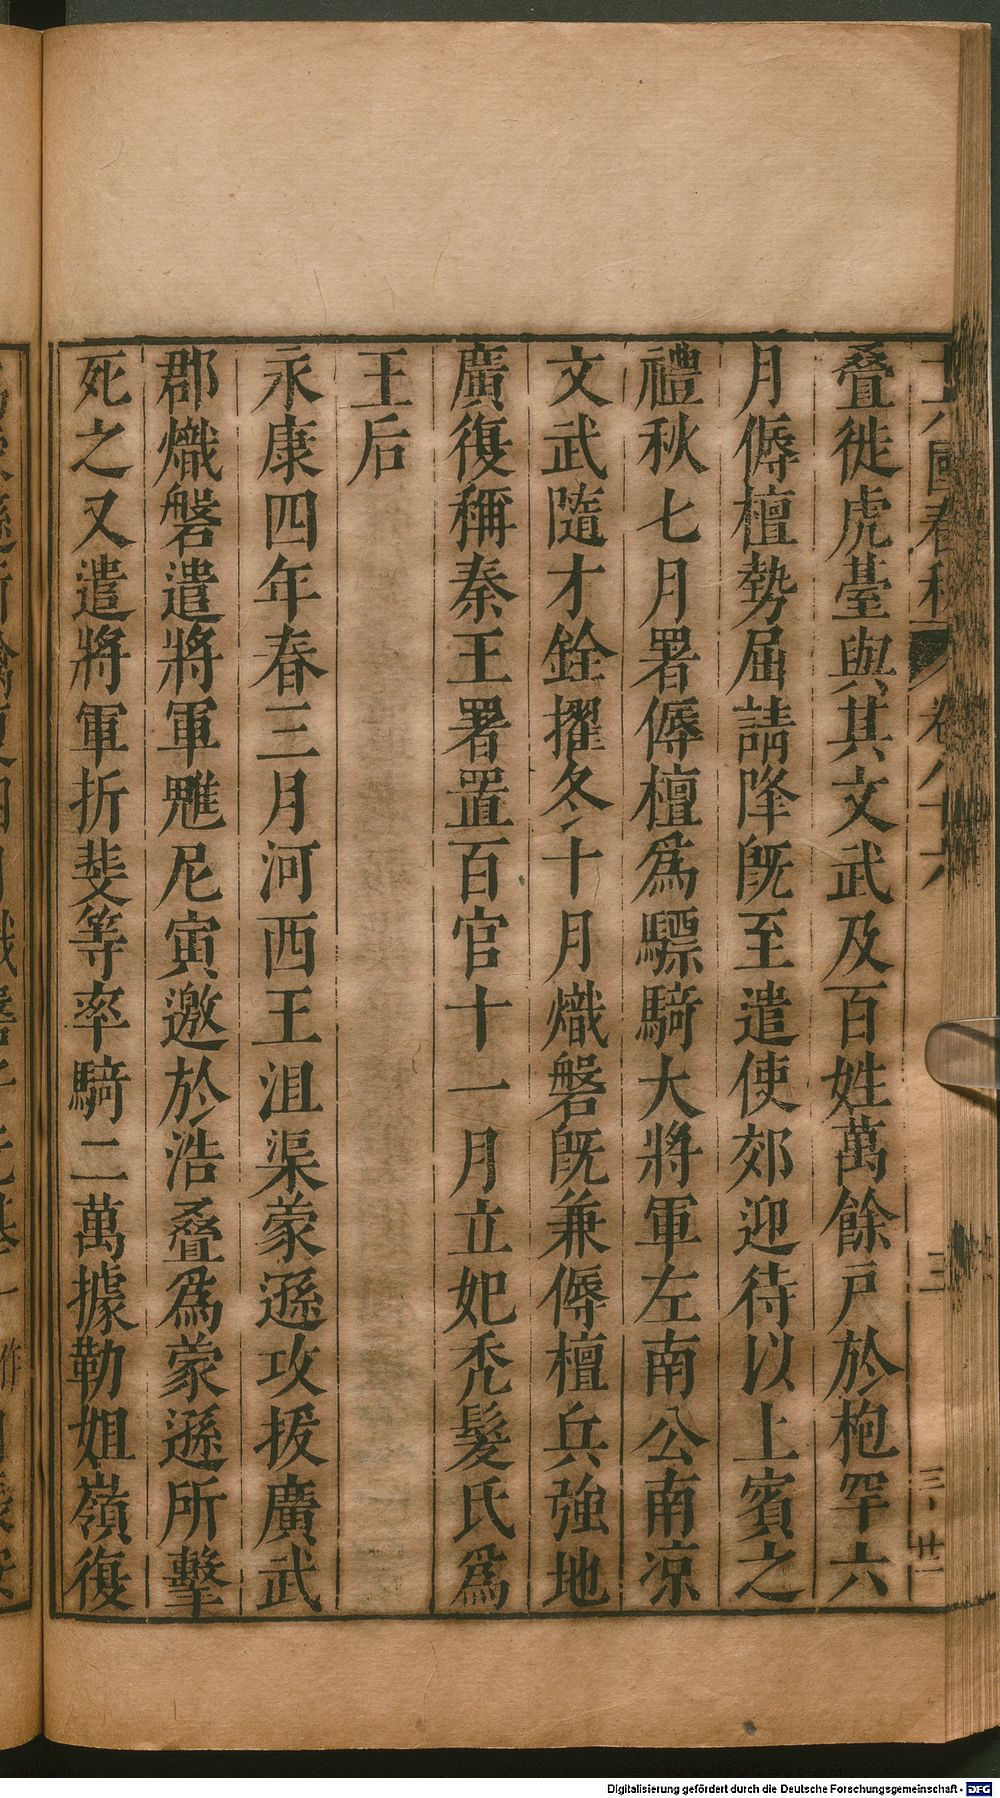 十六國春秋 卷八十六 三 三·廿二
疊徙虎臺與其文武及百姓萬餘戶於枹罕六
月傉檀勢屈請降旣至遣使郊迎待以上賓之
禮秋七月署傉檀爲驃騎大將軍左南公南凉
文武隨才銓擢冬十月熾磐旣兼傉檀兵強地
廣復稱秦王署置百官十一月立妃禿髮氏爲
王后
永康四年春三月河西王沮渠蒙遜攻拔廣武
郡熾磐遣將軍魋尼寅邀於浩亹爲蒙遜所擊
死之又遣將軍折斐等率騎二萬據勒姐嶺復
Digitalisierung gefördert durch die Deutsche Forschungsgemeinschaft - DFG